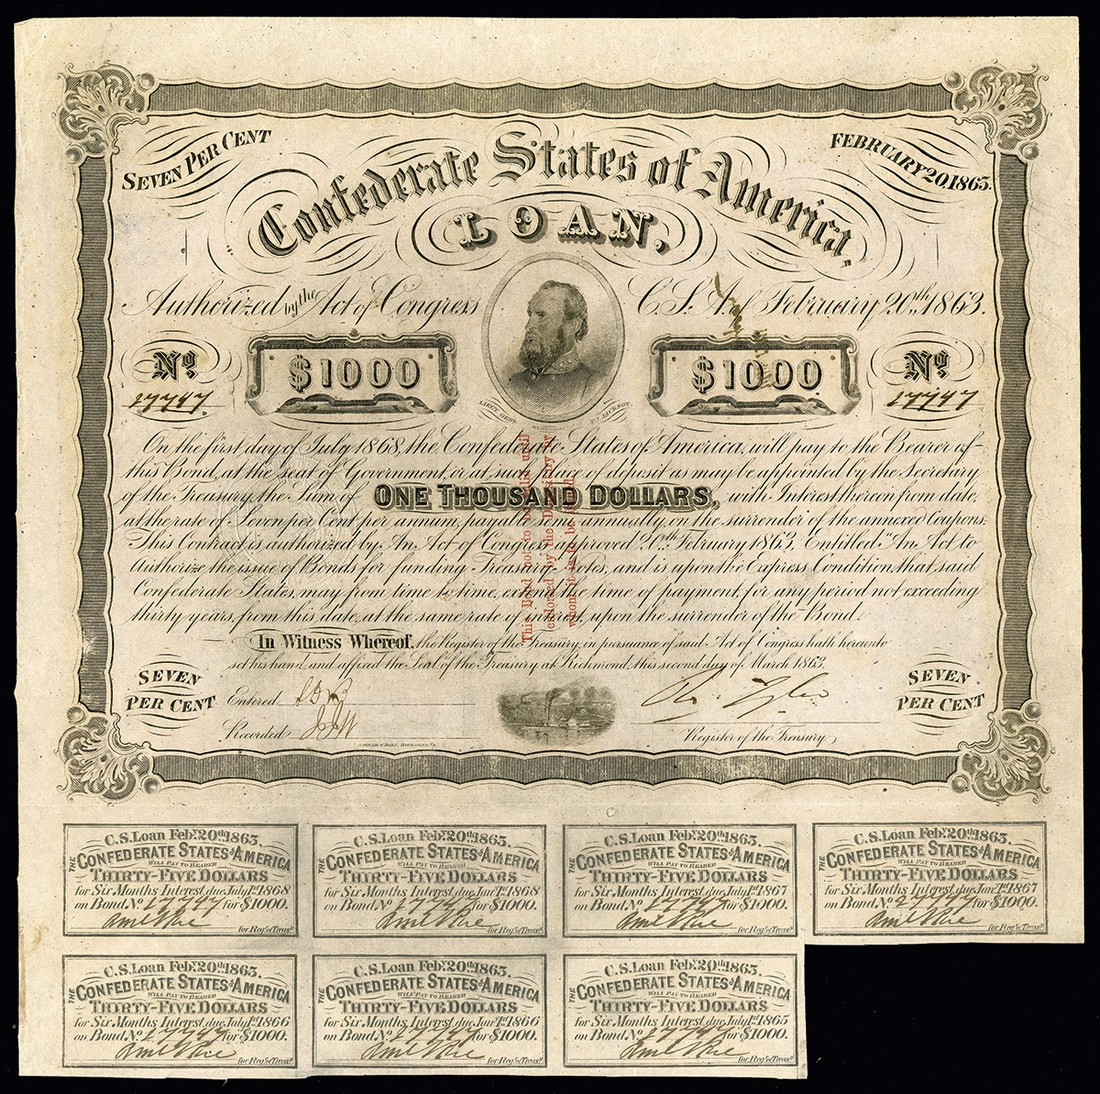 SEVEN PER CENT
FEBRUARY 20, 1863.
Confederate States of America,
LOAN,
Authorized by the Act of Congress C.S.A. of February 20th 1863.
No. $1000 $1000 No.
27747 27747
LIEUT. GENL. T.J. JACKSON.
On the first day of July 1868, the Confederate States of America, will pay to the Bearer of
this Bond, at the Seat of Government, or at such place of deposit as may be appointed by the Secretary
of the Treasury, the Sum of ONE THOUSAND DOLLARS, with Interest thereon from date,
at the rate of Seven per Cent per annum, payable semi annually, on the surrender of the annexed Coupons.
This Contract is authorized by An Act of Congress approved 20th February 1863, Entitled "An Act to
Authorize the issue of Bonds for funding Treasury Notes, and is upon the Express Condition, that said
Confederate States, may from time to time, extend the time of payment, for any period not exceeding
thirty years, from this date, at the same rate of interest, upon the surrender of the Bond.
In Witness Whereof, the Register of the Treasury, in pursuance of said Act of Congress hath hereunto
set his hand, and affixed the Seal of the Treasury, at Richmond, this second day of March 1863.
This Bond not to be valid until
endorsed by the Depositary by
whom it is to be paid.
SEVEN PER CENT
Entered
Recorded
Ro. Tyler
Register of the Treasury
SEVEN PER CENT
C.S. Loan Feby. 20th 1863.
THE CONFEDERATE STATES OF AMERICA
WILL PAY TO BEARER
THIRTY-FIVE DOLLARS
for Six Months Interest due July 1st 1868
on Bond No. 27747 for $1000.
for Regr. of Treasy.
C.S. Loan Feby. 20th 1863.
THE CONFEDERATE STATES OF AMERICA
WILL PAY TO BEARER
THIRTY-FIVE DOLLARS
for Six Months Interest due Jany. 1st 1868
on Bond No. 27747 for $1000.
for Regr. of Treasy.
C.S. Loan Feby. 20th 1863.
THE CONFEDERATE STATES OF AMERICA
WILL PAY TO BEARER
THIRTY-FIVE DOLLARS
for Six Months Interest due July 1st 1867
on Bond No. 27747 for $1000.
for Regr. of Treasy.
C.S. Loan Feby. 20th 1863.
THE CONFEDERATE STATES OF AMERICA
WILL PAY TO BEARER
THIRTY-FIVE DOLLARS
for Six Months Interest due Jany. 1st 1867
on Bond No. 27747 for $1000.
for Regr. of Treasy.
C.S. Loan Feby. 20th 1863.
THE CONFEDERATE STATES OF AMERICA
WILL PAY TO BEARER
THIRTY-FIVE DOLLARS
for Six Months Interest due July 1st 1866
on Bond No. 27747 for $1000.
for Regr. of Treasy.
C.S. Loan Feby. 20th 1863.
THE CONFEDERATE STATES OF AMERICA
WILL PAY TO BEARER
THIRTY-FIVE DOLLARS
for Six Months Interest due Jany. 1st 1866
on Bond No. 27747 for $1000.
for Regr. of Treasy.
C.S. Loan Feby. 20th 1863.
THE CONFEDERATE STATES OF AMERICA
WILL PAY TO BEARER
THIRTY-FIVE DOLLARS
for Six Months Interest due July 1st 1865
on Bond No. 27747 for $1000.
for Regr. of Treasy.